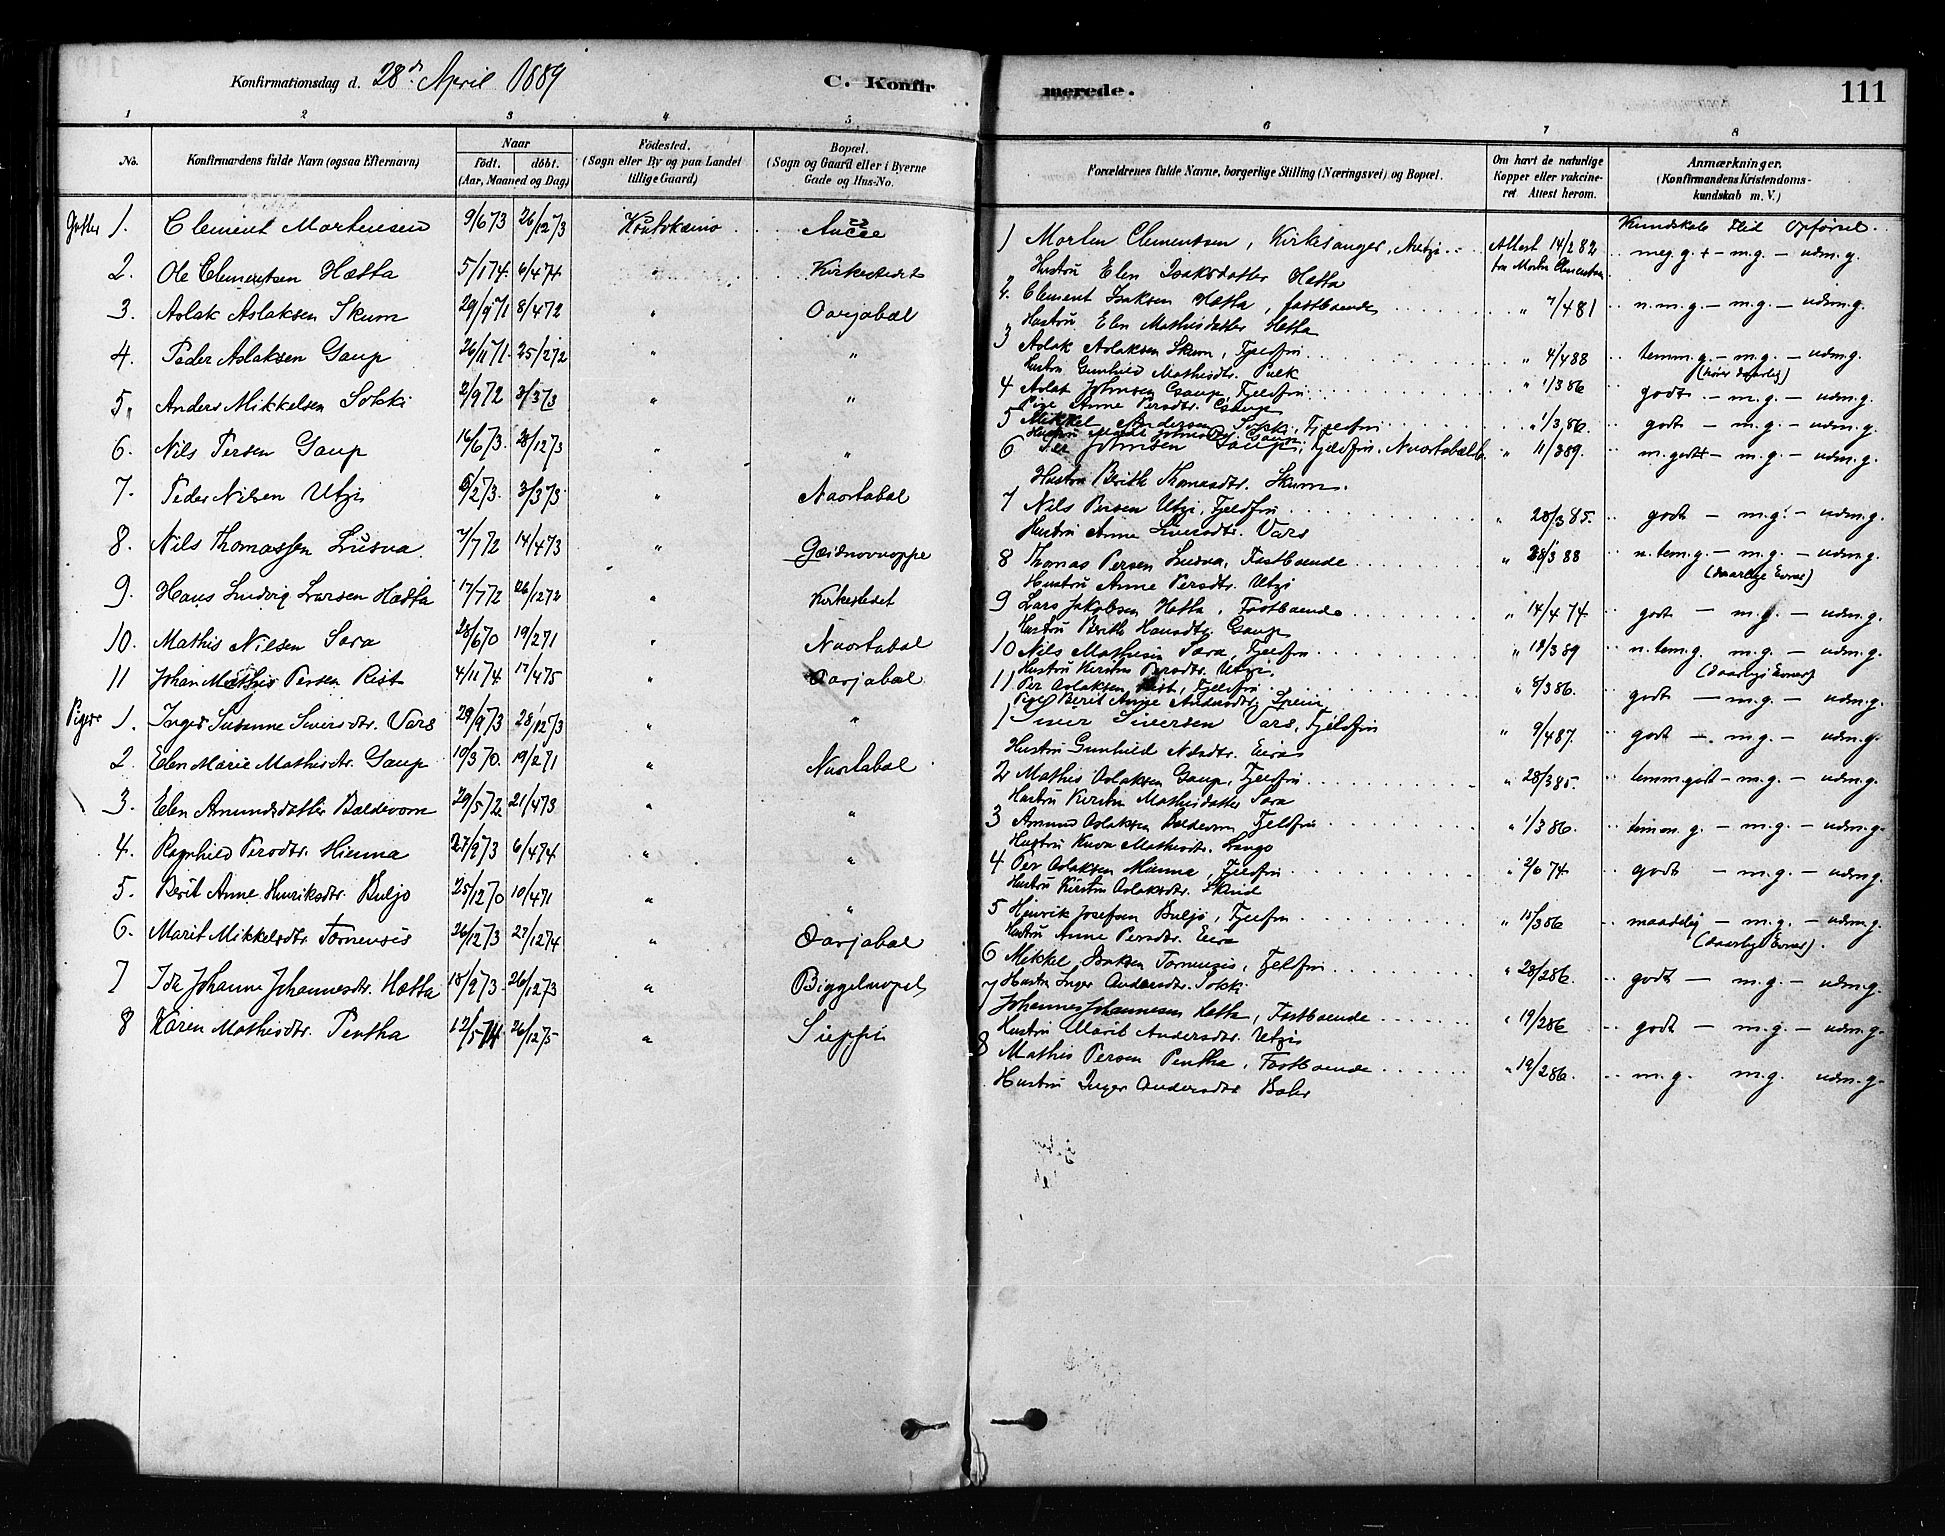 Konfirmationsdag d. 28de April 1889
C. Konfirmerede.
111
1 2 3 4 5 6 7 8
No.
Konfirmandens fulde Navn (ogsaa Efternavn)
Naar
født. døbt.
(Aar, Maaned og Dag)
Fødested.
(Sogn eller By og paa Landet
tillige Gaard)
Bopæl.
(Sogn og Gaard eller i Byerne
Gade og Hus-No.
Forældrenes fulde Navne, borgerlige Stilling (Næringsvei) og Bopæl.
Om havt de naturlige
Kopper eller vakcine-
ret Attest herom.
Anmærkninger.
(Konfirmandens Kristendoms-
kundskab m. V.)
Gutter 1. Clement Mortensen 9/6 73 26/12 73 Koutokeino
2. Ole Clementsen Hætta 5/1 74. 6/4 74 " Kirkestedet
3. Aslak Aslaksen Skum 29/9 71 8/4 72 " Oarjabæl
4. Peder Aslaksen Gaup 26/11 71. 25/2 72 " "
5. Anders Mikkelsen Sokki 2/9 72 3/3 73 " "
6. Nils Persen Gaup 16/6 73. 28/12 73 " "
7. Peder Nilsen Utzi /2 73. 3/3 73 " Naortabæl
8. Nils Thomassen Lusva. 7/7 72 14/4 73 "
9. Hans Ludvig Larsen Hætta 17/7 72 26/12 72 " Kirkestedet
10. Mathis Nilsen Sara 28/6 70 19/2 71 " Naortabæl
11 Johan Mathis Persen Rist 4/11 74 17/4 75 " Oarjabæl
Piger 1. Inger Susanne Siversdtr. Vars 29/9 73 28/12 73 " "
2. Elen Marie Mathisdtr. Gaup 10/3 70. 19/2 71 " Naortabæl
3. Elen Amundsdatter Bældevom 29/5 72 21/4 73 " "
4. Ragnhild Persdtr. Mienna 27/9 73 6/4 74 " "
5. Berit Anne Henriksdtr. Buljo 25/12 70 10/4 71 " "
6. Marit Mikkelsdtr. Tornensis 26/12 73 27/12 74 " Oarjabæl
7 Ida Johanne Johannesdtr. Hætta 18/9 73. 26/12 73 "
8 Karen Mathisdtr. Pentha 12/5 74 26/12 75 " Sieppi
Kundskab Flid Opførsel.
1 Morten Clementsen, Kirkesanger, Autzi Attest 14/2 82 meg. g. + – m.g. – udm. g.
Hustru Elen Isaksdatter Hætta fra Morten Clementsen
2. Clement Isaksen Hætta, fastboende " 7/4 81 n. m.g. – m.g. – udm.g.
Hustru Elen Mathisdatter Hætta
3 Aslak Aslaksen Skum, Fjeldfin " 4/4 88 temm. g. – m.g. – udm.g.
Hustru Gunhild Mathisdtr. Pulk
4 Aslak Johnsen Gaup, Fjeldfin " 1/3 86 godt – m.g. – udm.g.
Pige Anne Persdtr. Gaup
5 Mikkel Andersen Sokki, Fjeldfin " 1/3 86. godt – m.g. – udm.g.
6 Per Johnsen Gaup, Fjeldfin, Naortabæl " 11/3 89. m. godt – m.g. – udm.g.
Hustru Brith Thomasdtr. Skum.
7 Nils Persen Utzi, Fjeldfin " 28/3 85. godt – m.g. – udm.g.
Hustru Anne Siversdtr. Vars
8 Thomas Persen Lusva, Fastboende " 28/3 88 n. tem.g. – m.g. – udm.g.
Hustru Anne Persdtr. Utzi (daarlige Evner)
9 Lars Jakobsen Hætta, Fastboende " 14/4 74. godt – m.g. – udm.g.
Hustru Brith Hansdtr. Gaup
10 Nils Mathisen Sara, Fjeldfin " 18/3 89 n. tem.g. m.g. – udm.g.
Hustru Kirsten Persdtr. Utzi (daarlige Evner)
11 Per Aslaksen Rist, Fjeldfin " 8/3 86. godt – m.g. – udm.g.
Pige Berit Anne Andersdtr. Spein
1 Siver Siversen Vars, Fjeldfin " 9/4 87. godt – m.g. – udm.g.
Hustru Gunhild Nilsdtr. Eira
2 Mathis Aslaksen Gaup, Fjeldfin " 28/3 85. temm. godt – m.g. – udm.g.
Hustru Kirsten Mathisdatter Sara
3 Amund Aslaksen Bældevom Fjeldfin " 1/3 86. temm. g. – m.g. – udm.g.
Hustru Mathisdtr. Lango
4 Per Aslaksen Mienna, Fjeldfin " 2/6 74 godt – m.g. – udm.g.
Hustru Kirsten Aslaksdtr. Skind
5 Henrik Josefsen Buljo, Fjeldfin " 18/3 86 maadelig – m.g. – udm.g.
Hustru Anne Persdtr. Eira (daarlige Evner).
6 Mikkel Isaksen Tornensis, Fjeldfin " 28/2 86. godt – m.g. – udm.g.
Hustru Inger Andersdtr. Sokki
7 Johannes Johannesen Hætta, Fastboende " 19/2 86 godt – m.g. – udm.g.
Hustru Marit Andersdtr. Utzi
8 Mathis Persen Pentha, Fastboende " 19/2 86. m.g. m.g. udm.g.
Hustru Inger Andersdtr Bahr